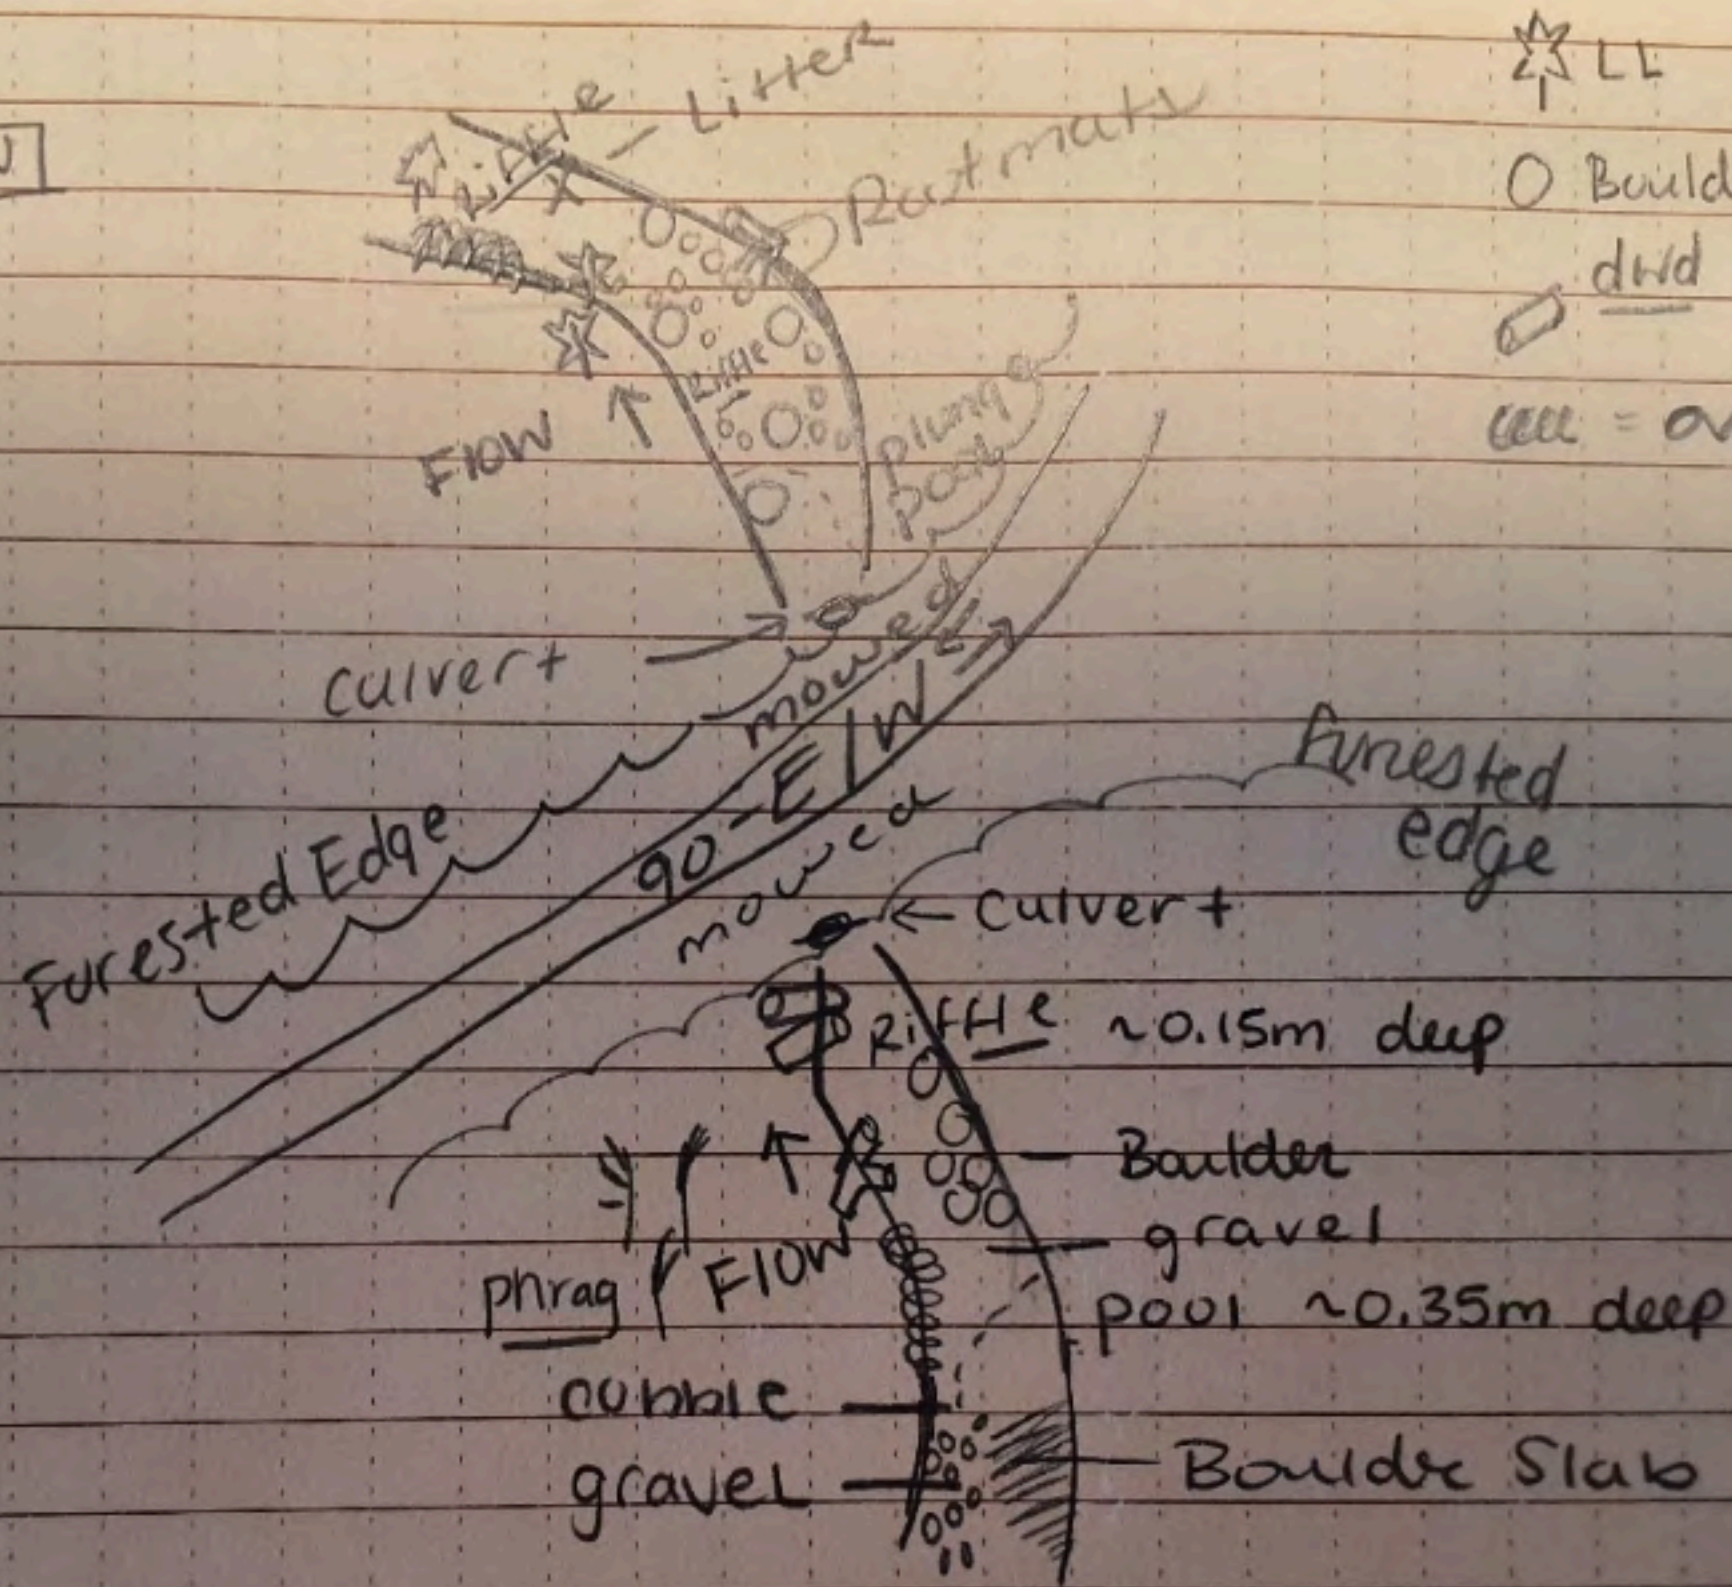 LL
Litter
Riffle
X
Rootmats
Bould
dwd
Riffle
Flow
plunge
pool
= ov
culvert
mowed
90-E/W
Forested
edge
Forested Edge
mowed
culvert
Riffle ~0.15m deep
Boulder
gravel
phrag
Flow
pool ~0.35m deep
cobble
gravel
Boulder Slab